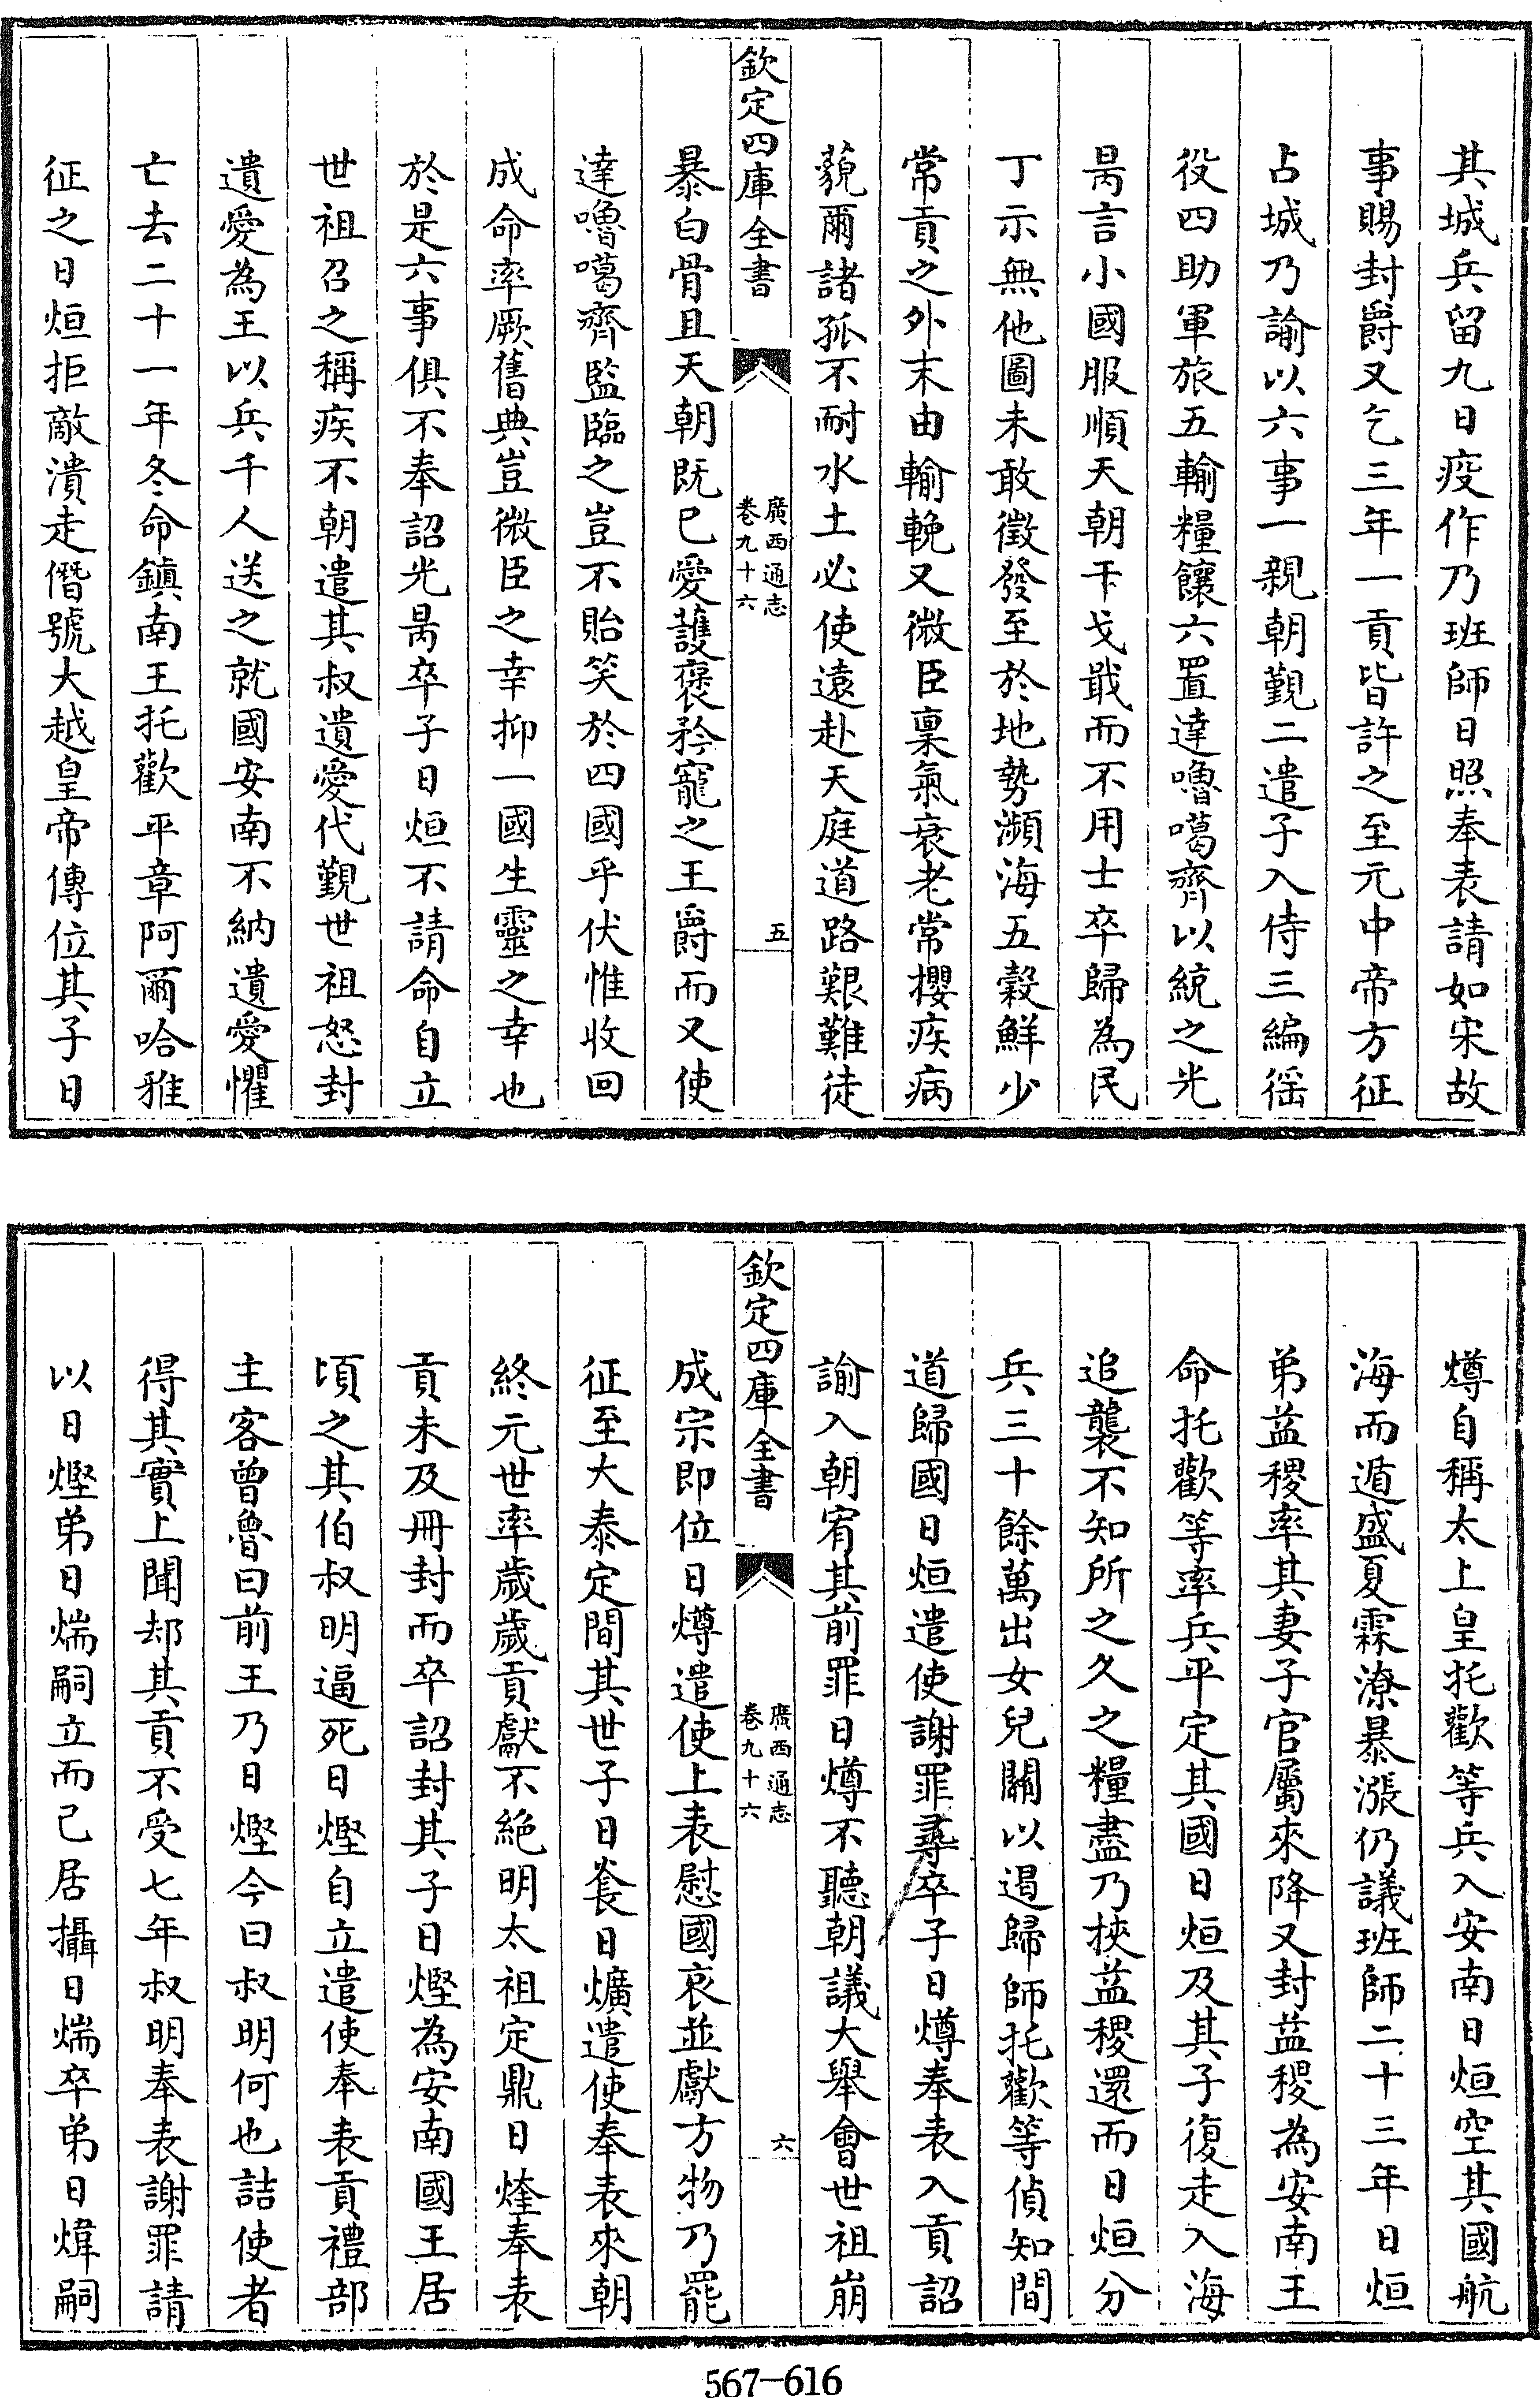 其城兵留九日疫作乃班師日照奉表請如宋故
事賜封爵又乞三年一貢皆許之至元中帝方征
占城乃諭以六事一親朝覲二遣子入侍三編徭
役四助軍旅五輸糧饟六置達嚕噶齊以統之光
昺言小國服順天朝干戈戢而不用士卒歸為民
丁示無他圖未敢徵發至於地勢瀕海五穀鮮少
常貢之外末由輸輓又微臣稟氣衰老常攖疾病
藐爾諸孤不耐水土必使遠赴天庭道路艱難徒
欽定四庫全書
廣西通志
卷九十六
五
暴白骨且天朝既已愛護褒矜寵之王爵而又使
達嚕噶齊監臨之豈不貽笑於四國乎伏惟收回
成命率厥舊典豈微臣之幸抑一國生靈之幸也
於是六事俱不奉詔光昺卒子日烜不請命自立
世祖召之稱疾不朝遣其叔遺愛代覲世祖怒封
遺愛為王以兵千人送之就國安南不納遺愛懼
亡去二十一年冬命鎮南王托歡平章阿爾哈雅
征之日烜拒敵潰走僭號大越皇帝傳位其子日
燇自稱太上皇托歡等兵入安南日烜空其國航
海而遁盛夏霖潦暴漲仍議班師二十三年日烜
弟益稷率其妻子官屬來降又封益稷為安南王
命托歡等率兵平定其國日烜及其子復走入海
追襲不知所之久之糧盡乃挾益稷還而日烜分
兵三十餘萬出女兒關以遏歸師托歡等偵知間
道歸國日烜遣使謝罪尋卒子日燇奉表入貢詔
諭入朝宥其前罪日燇不聽朝議大舉會世祖崩
欽定四庫全書
廣西通志
卷九十六
六
成宗即位日燇遣使上表慰國哀並獻方物乃罷
征至大泰定間其世子日㷃日爌遣使奉表來朝
終元世率歲歲貢獻不絕明太祖定鼎日煃奉表
貢未及冊封而卒詔封其子日熞為安南國王居
頃之其伯叔明逼死日熞自立遣使奉表貢禮部
主客曾魯曰前王乃日熞今曰叔明何也詰使者
得其實上聞却其貢不受七年叔明奉表謝罪請
以日熞弟日煓嗣立而己居攝日煓卒弟日煒嗣
567-616